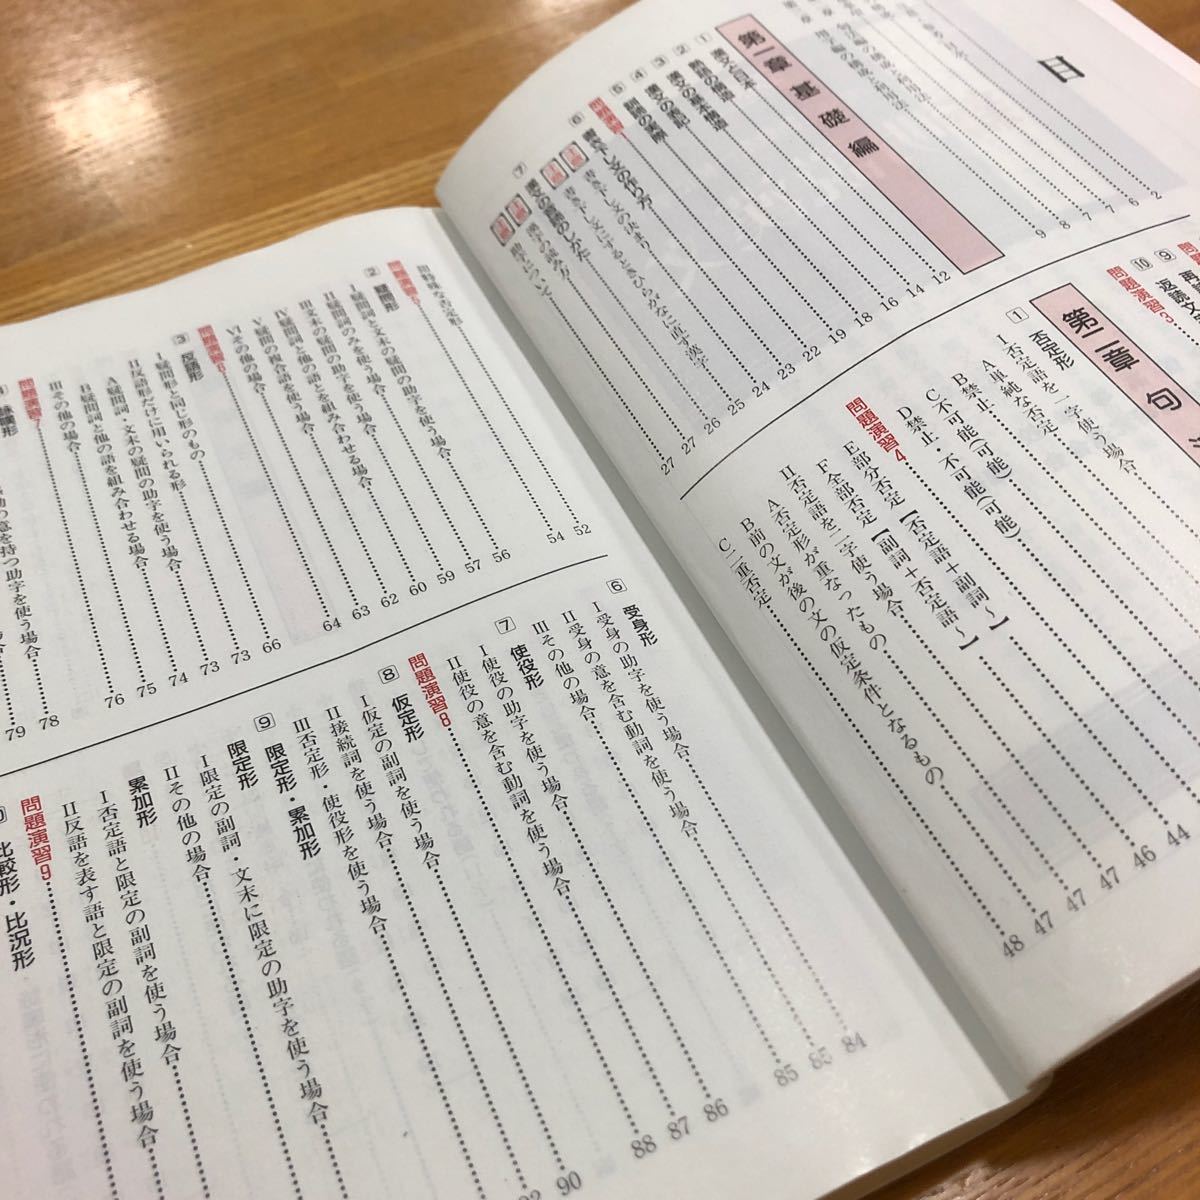 目
第一章 基礎編
1 漢文と日本
3 漢文の基本構造
4 漢文の訓読
問題演習
6 書き下し文の作り方
書き下し文の決まり
書き下し文にするときひらがなに直す漢字
7 漢文の学習のしかた
漢字の読み方
2
6
7
7
8
9
12
14
16
18
19
22
23
24
25
26
27
27
9
10 返読文
問題演習3
第二章 句
1 否定形
Ⅰ否定語を一字使う場合
A単純な否定
B禁止
C不可能(可能)
D禁止・不可能(可能)
問題演習4
E部分否定【否定語＋副詞～】
F全部否定【副詞＋否定語～】
Ⅱ否定語を二字使う場合
A否定形が重なったもの
B前の文が後の文の仮定条件となるもの
C二重否定
44
46
47
47
47
48
Ⅲ特殊な否定形 52
問題演習5 54
2 疑問形
Ⅰ疑問詞と文末の疑問の助字を使う場合 56
Ⅱ疑問詞のみを使う場合 57
Ⅲ文末の疑問の助字を使う場合 59
Ⅳ疑問詞と他の語を組み合わせる場合 60
Ⅴ疑問の複合語を使う場合 62
Ⅵその他の場合 63
問題演習6 64
3 反語形
Ⅰ疑問形と同じ形のもの 66
Ⅱ反語形だけに用いられる形 73
A疑問詞・文末の疑問の助字を使う場合 73
B疑問詞と他の語を組み合わせる場合 74
Ⅲその他の場合 75
問題演習7 76
78
79
6 受身形
Ⅰ受身の助字を使う場合 84
Ⅱ受身の意を含む動詞を使う場合 85
Ⅲその他の場合 85
7 使役形
Ⅰ使役の助字を使う場合 86
Ⅱ使役の意を含む動詞を使う場合 87
問題演習8 88
8 仮定形
Ⅰ仮定の副詞を使う場合 90
Ⅱ接続詞を使う場合
Ⅲ否定形・使役形を使う場合
9 限定形・累加形
限定形
Ⅰ限定の副詞・文末に限定の助字を使う場合
Ⅱその他の場合
累加形
Ⅰ否定語と限定の副詞を使う場合
Ⅱ反語を表す語と限定の副詞を使う場合
問題演習9
比較形・比況形